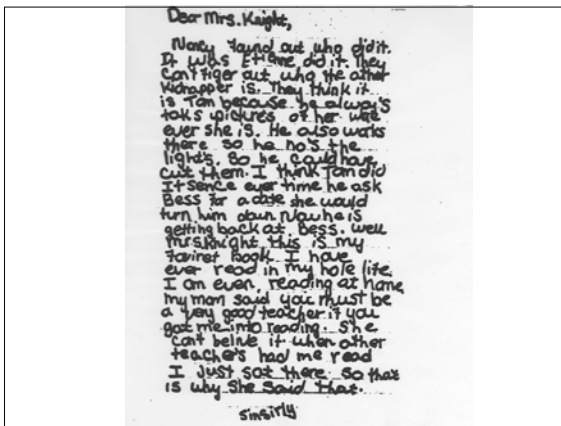 Dear Mrs. Knight,
Nancy found out who did it.
It was Etienne did it. They
can't figer out who the other
kidnapper is. They think it
is Tom because he alway's
taks pictures of her wae
ever she is. He also works
there so he no's the
light's. So he could have
cut them. I think Tom did
it sence ever time he ask
Bess for a date she would
turn him down. Now he is
getting back at Bess. well
mrs. Knight this is my
faviret book I have
ever read in my hole life.
I am even, reading at home,
my mom said you must be
a very good teacher if you
got me into reading. She
can't belive it when other
teachers had me read
I just sat there. So that
is why she said that.
sinsirly